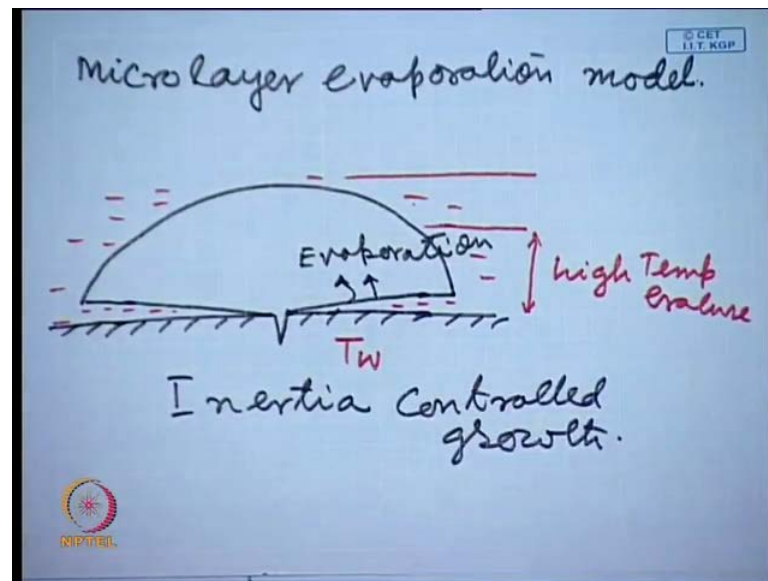 © CET
I.I.T. KGP
Microlayer evaporation model.
Evaporation
high Temp
erature
Tw
Inertia controlled
growth.
NPTEL